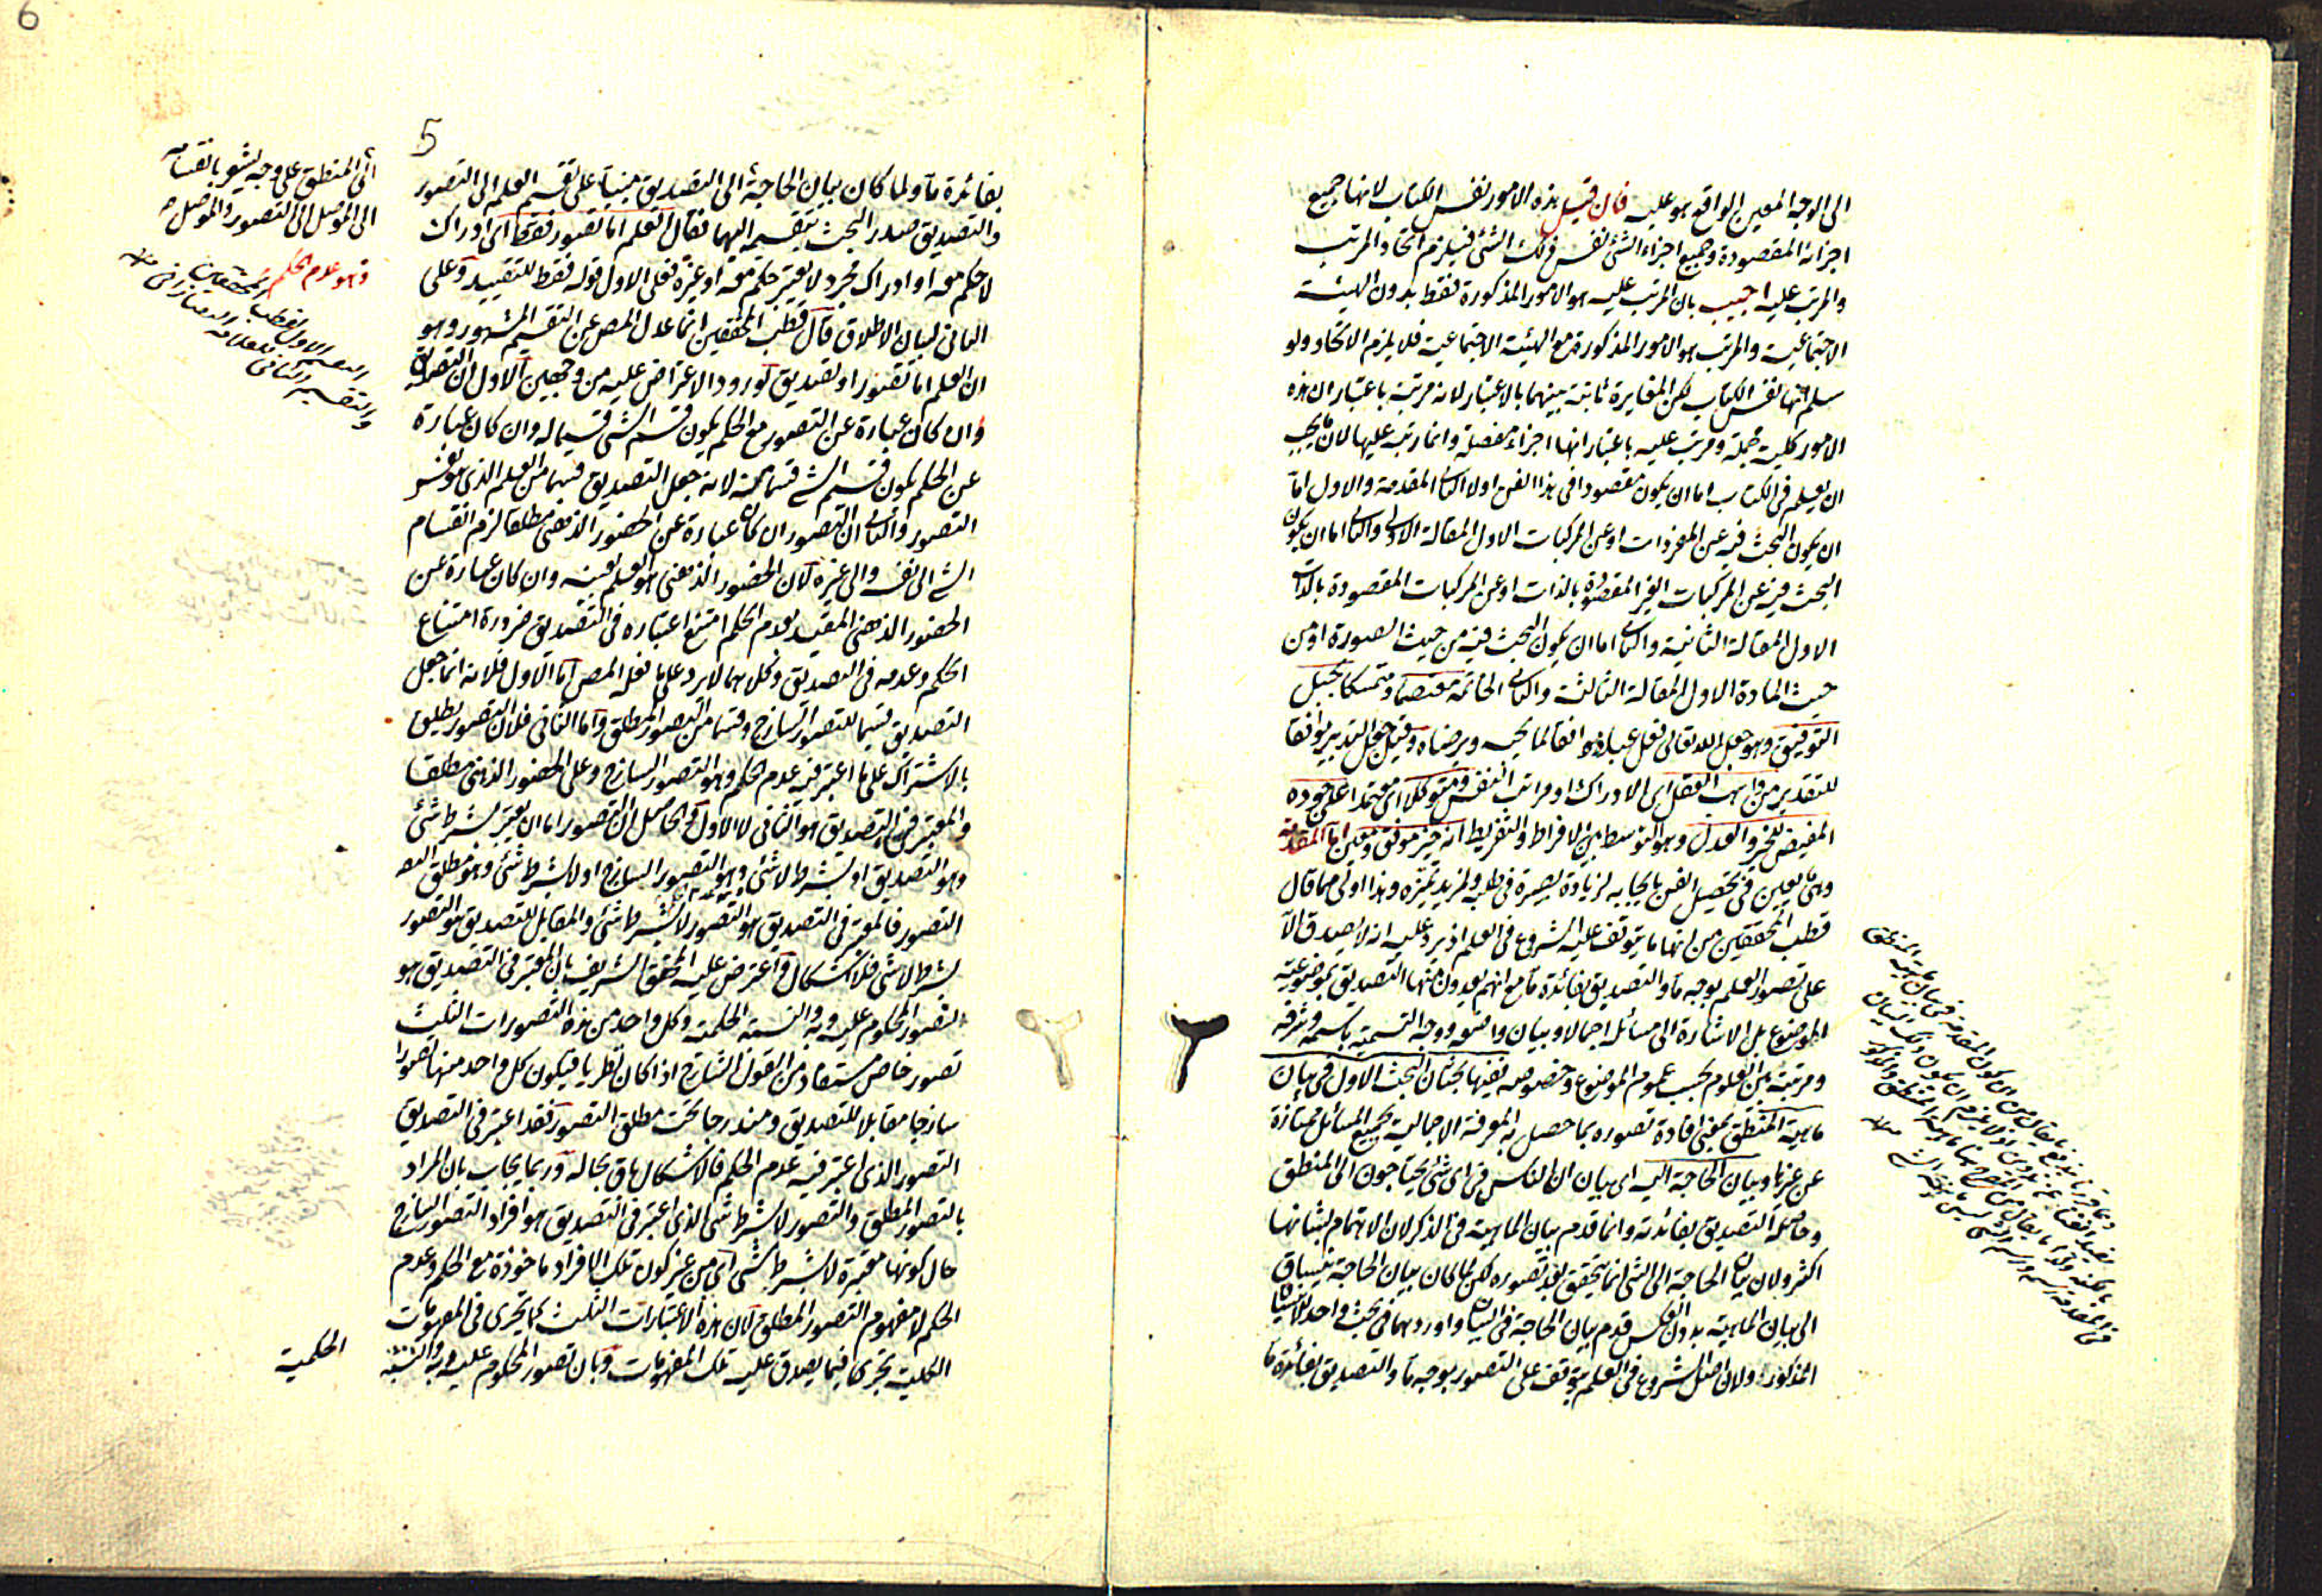 الى الوجه المعين الواقع هو عليه فان قيل هذه الامور نفس الكتاب لانها جميع
اجزائه المقصودة وجميع اجزاء الشئ نفس ذلك الشئ فيلزم اتحاد المرتب
والمرتب عليه اجيب بان المرتب عليه هو الامور المذكورة فقط بدون الهيئة
الاجتماعية والمرتب هو الامور المذكورة مع الهيئة الاجتماعية فلا يلزم الاتحاد ولو
سلم انها نفس الكتاب لكن المغايرة ثابتة بينهما بالاعتبار لانه مرتبة باعتبار ان هذه
الامور كلية مجملة ومرتب عليه باعتبار انها اجزاء مفصلة وانما رتب عليها لان ما يجب
ان يعلم فى الكتاب اما ان يكون مقصودا فى هذا الفن اولا الثانى المقدمة والاول اما
ان يكون البحث فيه عن المفردات او عن المركبات الاول المقالة الاولى والثانى اما ان يكون
البحث فيه عن المركبات الغير المقصودة بالذات او عن المركبات المقصودة بالذات
الاول المقالة الثانية والثانى اما ان يكون البحث فيه من حيث الصورة او من
حيث المادة الاول المقالة الثالثة والثانى الخاتمة معتصما ومتمسكا بحبل
التوفيق وهو جعل الله تعالى فعل عباده موافقا لما يحبه ويرضاه وقيل جعل التدبير موافقا
للتقدير من واهب العقل اى الادراك او مراتب النفس ومتوكلا اى معتمدا على جوده
المفيض للخير والعدل وهو التوسط بين الافراط والتفريط انه خير موفق ومعين اما المقدمة
وهى ما يعين فى تحصيل الفن بايجابه لزيادة بصيرة فى طلبه ولمزيد تميزه وهذا اولى مما قال
قطب المحققين من انها ما يتوقف عليه الشروع فى العلم اذ يرد عليه انه لا يصدق الا
على تصور العلم بوجه ما والتصديق بفائدة ما مع انهم يعدون منها التصديق بموضوعية
الموضوع بل الاشارة الى مسائله اجمالا وبيان واضعه ووجه التسمية باسمه وشرفه
ومرتبته من العلوم بحسب عموم الموضوع وخصوصه ففيها بحثان البحث الاول فى بيان
ماهية المنطق بمعنى افادة تصوره بما حصل به المعرفة الاجمالية بجميع المسائل ممتازة
عن غيرها وبيان الحاجة اليه اى بيان ان الناس فى اى شئ يحتاجون الى المنطق
وحاصله التصديق بفائدته وانما قدم بيان الماهية فى الذكر لان الاهتمام بشانها
اكثر ولان بيان الحاجة الى الشئ انما يتحقق بعد تصوره لكن لما كان بيان الحاجة ينساق
الى بيان الماهية بدون العكس قدم بيان الحاجة فى البيان واوردهما فى بحث واحد للانسياق
المذكور ولان اصل الشروع فى العلم يتوقف على التصور بوجه ما والتصديق بفائدة ما
5
بفائدة ما ولما كان بيان الحاجة الى التصديق مبنيا على تقسيم العلم الى التصور
والتصديق صدر البحث بتقسيمه اليهما فقال العلم اما تصور فقط اى ادراك
لا حكم معه او ادراك مجرد لا يعتبر حكم معه او غيره فعلى الاول قوله فقط للتقييد وعلى
الثانى لبيان الاطلاق قال قطب المحققين انما عدل المص عن التقسيم المشهور وهو
ان العلم اما تصور او تصديق لورود الاعتراض عليه من وجهين الاول ان التصديق
وان كان عبارة عن التصور مع الحكم يكون قسم الشئ قسيما له وان كان عبارة
عن الحكم يكون قسيم الشئ قسما منه لانه جعل التصديق قسما من العلم الذى هو نفس
التصور والثانى ان التصور ان كان عبارة عن الحضور الذهنى مطلقا لزم انقسام
الشئ الى نفسه والى غيره لان الحضور الذهنى هو العلم بعينه وان كان عبارة عن
الحضور الذهنى المقيد بعدم الحكم امتنع اعتباره فى التصديق ضرورة امتناع
الحكم وعدمه فى التصديق وكلاهما لا يرد على ما فعله المص اما الاول فلانه انما جعل
التصديق قسيما للتصور الساذج وقسما من التصور المطلق واما الثانى فلان التصور يطلق
بالاشتراك على ما اعتبر فيه عدم الحكم وهو التصور الساذج وعلى الحضور الذهنى مطلقا
والمعتبر فى التصديق هو الثانى لا الاول والحاصل ان التصور اما ان يعتبر بشرط شئ
وهو التصديق او بشرط لا شئ وهو التصور الساذج او لا بشرط شئ وهو مطلق
التصور فالمعتبر فى التصديق هو التصور لا بشرط شئ والمقابل للتصديق هو التصور
بشرط لا شئ فلا اشكال واعترض عليه المحقق الشريف بان المعتبر فى التصديق هو
تصور المحكوم عليه وبه والنسبة الحكمية وكل واحد من هذه التصورات الثلث
تصور خاص مستفاد من القول الشارح اذا كان نظريا فيكون كل واحد منها تصورا
ساذجا مقابلا للتصديق ومندرجا تحت مطلق التصور فقد اعتبر فى التصديق
التصور الذى اعتبر فيه عدم الحكم فالاشكال باق بحاله وربما يجاب بان المراد
بالتصور المطلق والتصور لا بشرط شئ الذى اعتبر فى التصديق هو افراد التصور الساذج
حال كونها معتبرة لا بشرط شئ اى من غير كون تلك الافراد ماخوذة مع الحكم وعدم
الحكم لا مفهوم التصور المطلق لان هذه الاعتبارات الثلث كما تجرى فى المفهومات
الكلية تجرى فيما يصدق عليه تلك المفهومات وبان تصور المحكوم عليه وبه والنسبة
الحكمية
اى المنطق على وجه يشعر بانقسامه
الى الموصل الى التصور والموصل
وهو عدم الحكم
التقسيم الاول لقطب المحققين
والتقسيم الثانى للعلامة التفتازانى منه
6